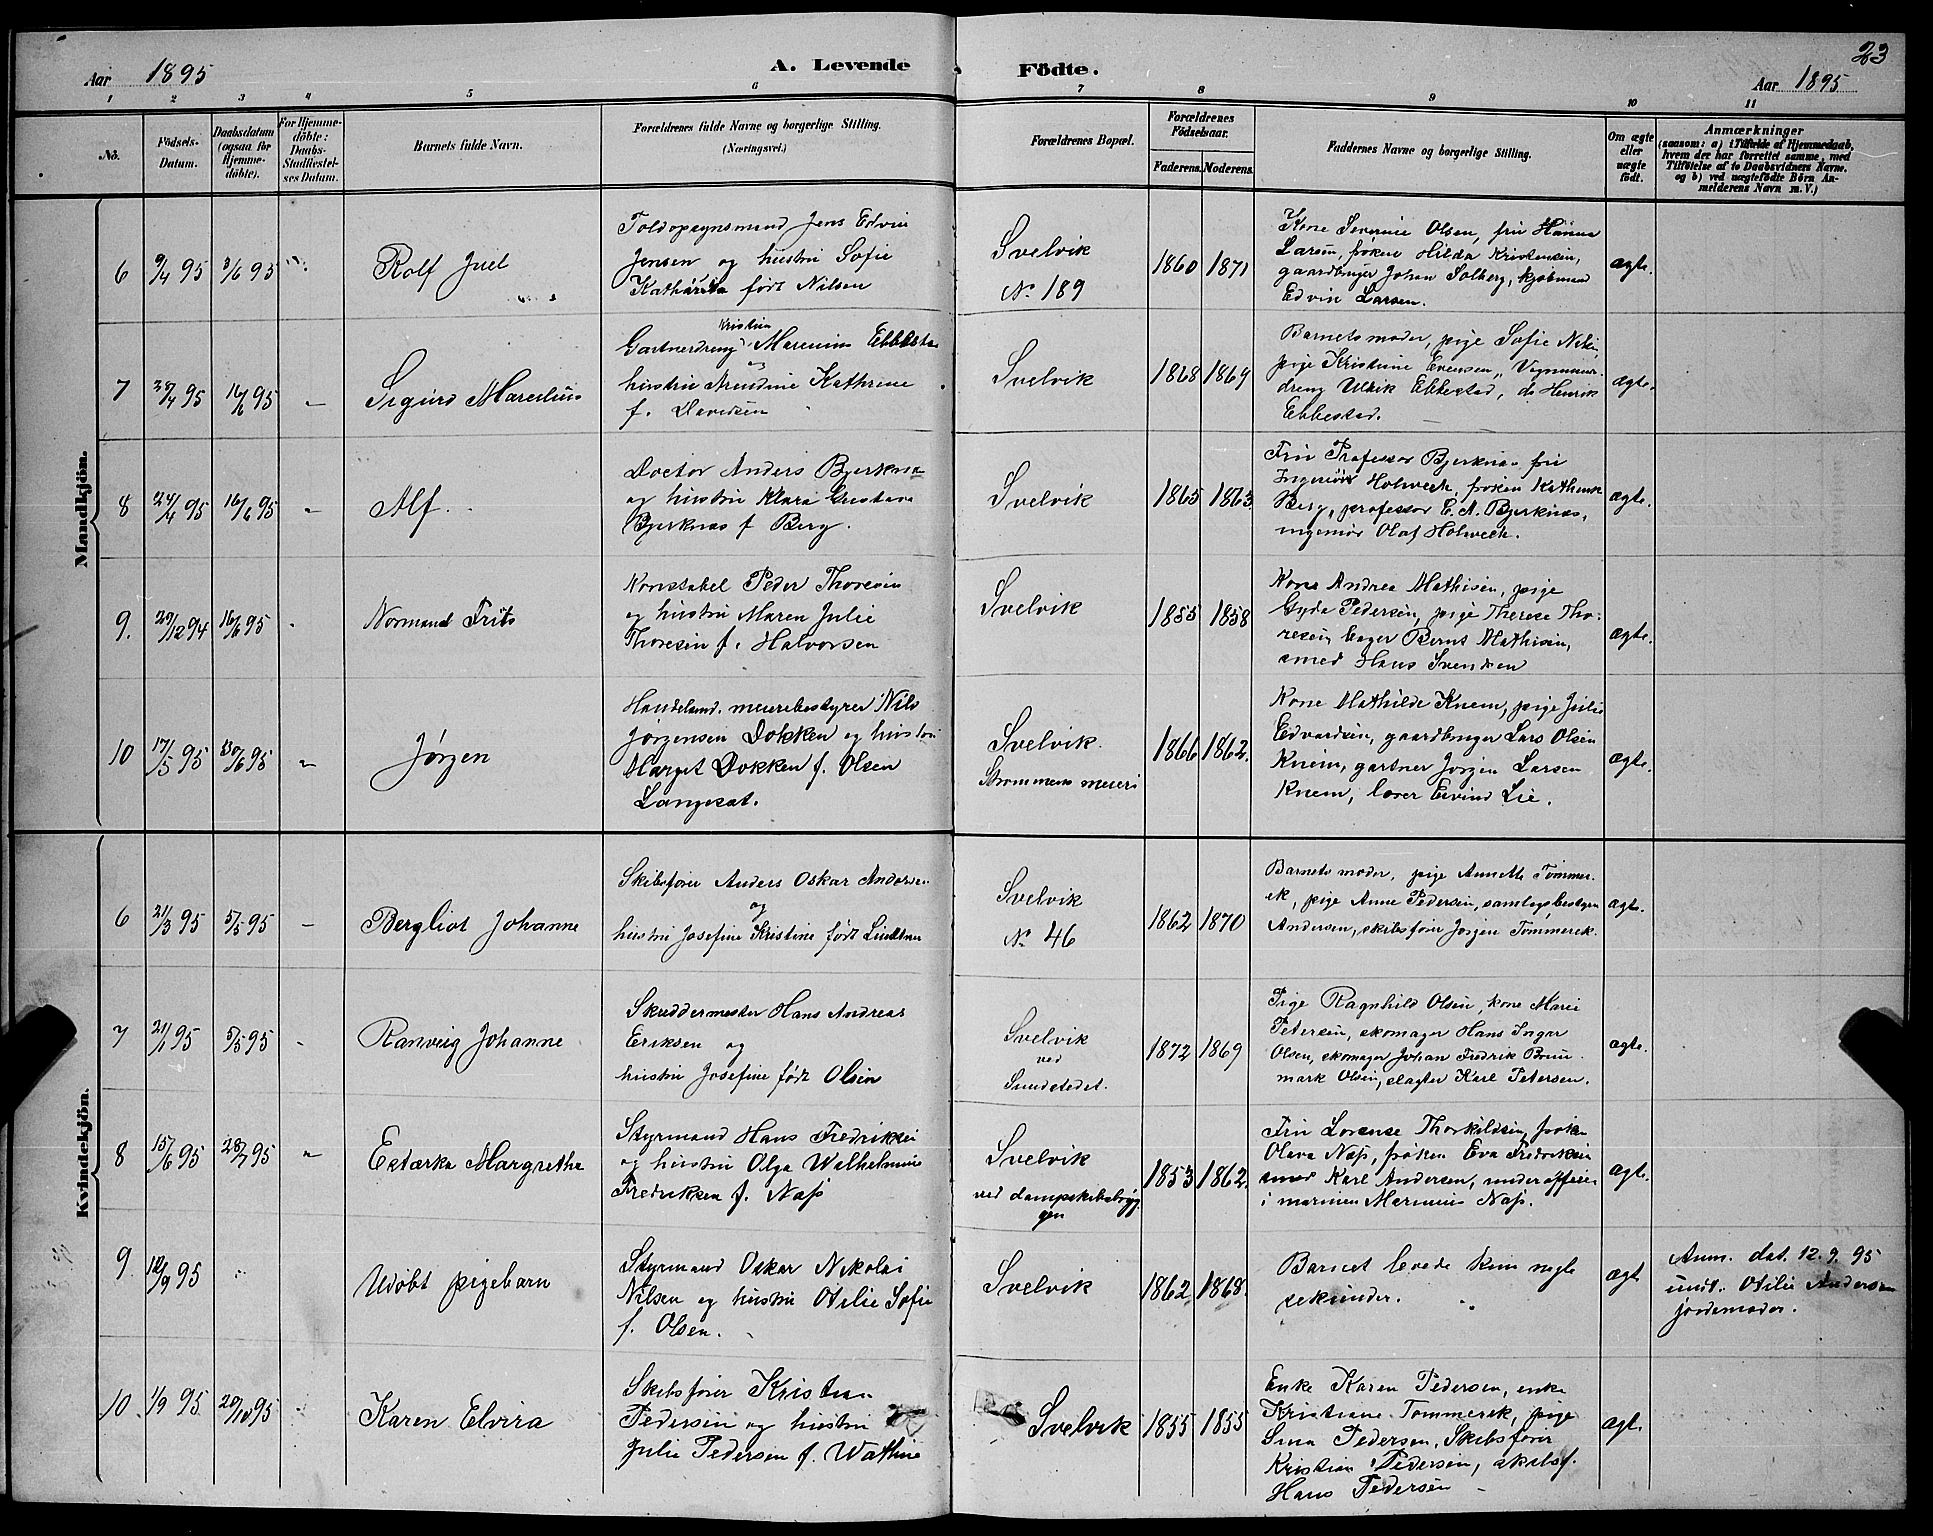 Aar 1895
A. Levende Födte.
23
Aar 1895
1 2 3 4 5 6 7 8 9 10 11
No.
Födsels-Datum.
Daabsdatum (ogsaa for Hjemme-döbte).
For Hjemme-döbte: Daabs-Stadfæstel-ses Datum.
Barnets fulde Navn.
Forældrenes fulde Navne og borgerlige Stilling. (Næringsvei.)
Forældrenes Bopæl.
Forældrenes Födselsaar.
Faderens. Moderens.
Faddernes Navne og borgerlige Stilling.
Om ægte eller uægte födt.
Anmærkninger
(saasom: a) i Tilfælde af Hjemmedaab, hvem der har forrettet samme, med Tilföielse af to Daabsvidners Navne. og b) ved uægtefödte Börn An-melderens Navn m. V.)
Mandkjön.
6 9/4 95 3/6 95 Rolf Juel
Toldopsynsmand Jens Edvin
Jensen og hustru Sofie
Katharina født Nilsen
Svelvik
No 189
1860 1871
Kone Severine Olsen, fru Hanna
Larsen, frøken Hilda Kristensen,
gaardbruger Johan Solberg, kjøbmand
Edvin Larsen.
ægte.
7 95 16/6 95 – Sigurd Marelius
Kristian
Gartnerdreng Marenius Ebbestad
og
hustru Arendine Kathrine
f. Davidsen
Svelvik
1868 1869
Barnets moder, pige Sofie
pige Kristine Evensen,
dreng Ulrik Ebbestad, do Henrik
Ebbestad.
ægte.
8 24/4 95 16/6 95 – Alf.
Doctor Anders Bjerknæs
og hustru Klara Gustava
Bjerknæs f Berg.
Svelvik
1865 1863.
Fru Professor Bjerknæs, fru
Ingeniør Holwech, frøken Kathinka
Berg, professor C. A. Bjerknæs,
ingeniør Olaf Holwech.
ægte.
9. 29/12 94 16/6 95 Normand Frits
Konstabel Peder Thoresen
og hustru Maren Julie
Thoresen f. Halvorsen
Svelvik
1855 1858
Kone Andrea Mathisen, pige
Gyda Pedersen, pige Therese Tho-
resen, bager Bernt Mathisen,
smed Hans Svendsen
ægte.
10 17/5 95 30/6 95 – Jørgen
Handelsmd. meieribestyrer Nils
Jørgensen Dokken og hustru
Margit Dokken f. Olsen
Langesæt.
Svelvik.
Strommens meieri
1866 1862.
Kone Mathilde Knem, pige Julie
Edvardsen, gaardbruger Lars Olsen
Knem, gartner Jørgen Larsen
Knem, lærer Eivind Lie.
ægte.
Kvindekjön.
6 21/3 95 5/5 95 – Bergliot Johanne
Skibsfører Anders Oskar Andersen
og
hustru Josefine Kristine født Lindtner
Svelvik
No 46
1862 1870
Barnets moder, pige Annette Tømmer-
ek, pige Anne Pedersen, samlagsbestyrer
Andersen, skibsfører Jørgen Tømmerek.
ægte.
7 21/1 95 5/5 95 Ranveig Johanne
Skuddermester Hans Andreas
Eriksen og
hustru Josefine født Olsen
Svelvik
ved
Sundstedet.
1872 1869
Pige Ragnhild Olsen, kone Marie
Petersen, skomager Hans Ingar
Olsen, skomager Johan Fredrik
mark Olsen, slagter Karl Petersen.
ægte.
8 15/6 95 28/7 95 – Esterka Margrethe
Styrmand Hans Fredriksen
og hustru Olga Walhelmine
Fredriksen f. Næss
Svelvik
ved dampskibsbryg-
gen
1853 1862.
Fru Lorense Thorkildsen, frøken
Olava Næss, frøken Eva Fredriksen
smed Karl Andersen, underofficer
i marinen Marinius Næss.
ægte.
9 12/9 95 Udøbt pigebarn
Styrmand Oskar Nikolai
Nilsen og hustru Otilie Sofie
f. Olsen.
Svelvik
1862 1868.
Barnet levede kun nogle
sekunder.
ægte
Anm. dat. 12.9.95
undt. Otilie Andersen
jordemoder.
10. 1/9 95 20/10 95 Karen Elvira
Skibsfører Kristian
Pedersen og hustru
Julie Pedersen f. Wathne
Svelvik
1855 1855
Enke Karen Pedersen, enke
Kristiane Tømmerek, pige
Sina Pedersen, Skibsfører
Kristian Pedersen, skibsf.
Hans Pedersen
ægte